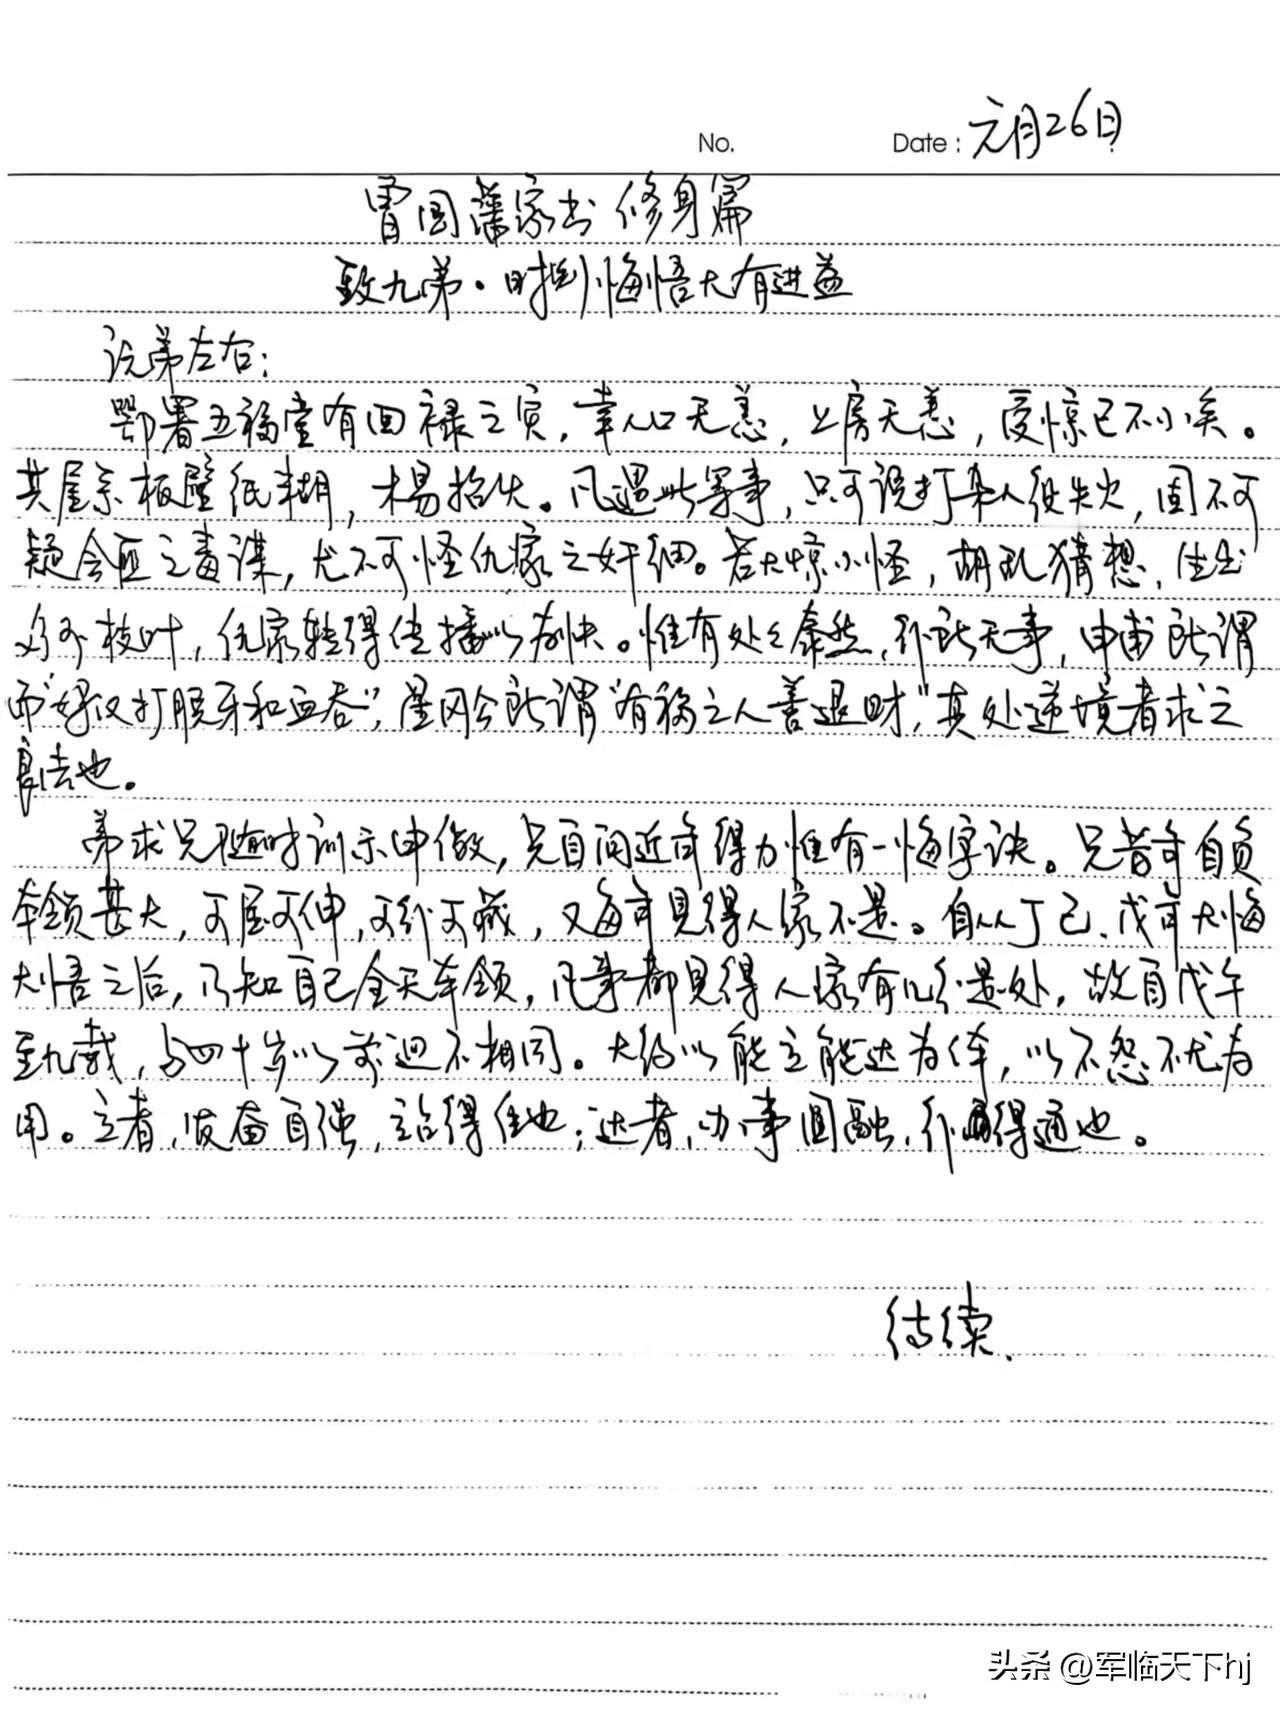 No. Date: 元月26日
曾国藩家书 修身篇
致九弟·时刻悔悟大有进益
沅弟左右：
鄂署五福堂有回禄之灾，幸人口无恙，上房无恙，受惊已不小矣。
其屋系板壁纸糊，本易招火。凡遇此等事，只可说打杂人役失火，固不可
疑会匪之毒谋，尤不可怪仇家之奸细。若大惊小怪，胡乱猜想，生出
多少枝叶，仇家转得传播以为快。惟有处之泰然，行所无事，申甫所谓
"好汉打脱牙和血吞"，星冈公所谓"有福之人善退财"，真处逆境者求之
良法也。
弟求兄随时训示申儆，兄自问近年得力惟有一悔字诀。兄昔年自负
本领甚大，可屈可伸，可行可藏，又每年见得人家不是。自从丁巳、戊年大悔
大悟之后，乃知自己全无本领，凡事都见得人家有几分是处，故自戊午
至九载，与四十岁以前迥不相同。大约以能立能达为体，以不怨不尤为
用。立者，发奋自强，站得住也；达者，办事圆融，行得通也。
待续.
头条 @军临天下hj